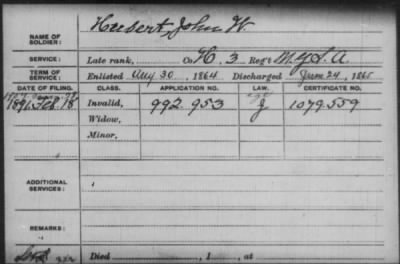 NAME OF SOLDIER: Hubert, John W.
SERVICE: Late rank, Co. H, 3 Reg't
TERM OF SERVICE: Enlisted Aug 30, 1864 Discharged June 24, 1865
DATE OF FILING. CLASS. APPLICATION NO. LAW. CERTIFICATE NO.
1891 Feb. 18 Invalid, 992 953 J 1079.559
Widow,
Minor,
ADDITIONAL SERVICES:
REMARKS:
Died , 1 , at